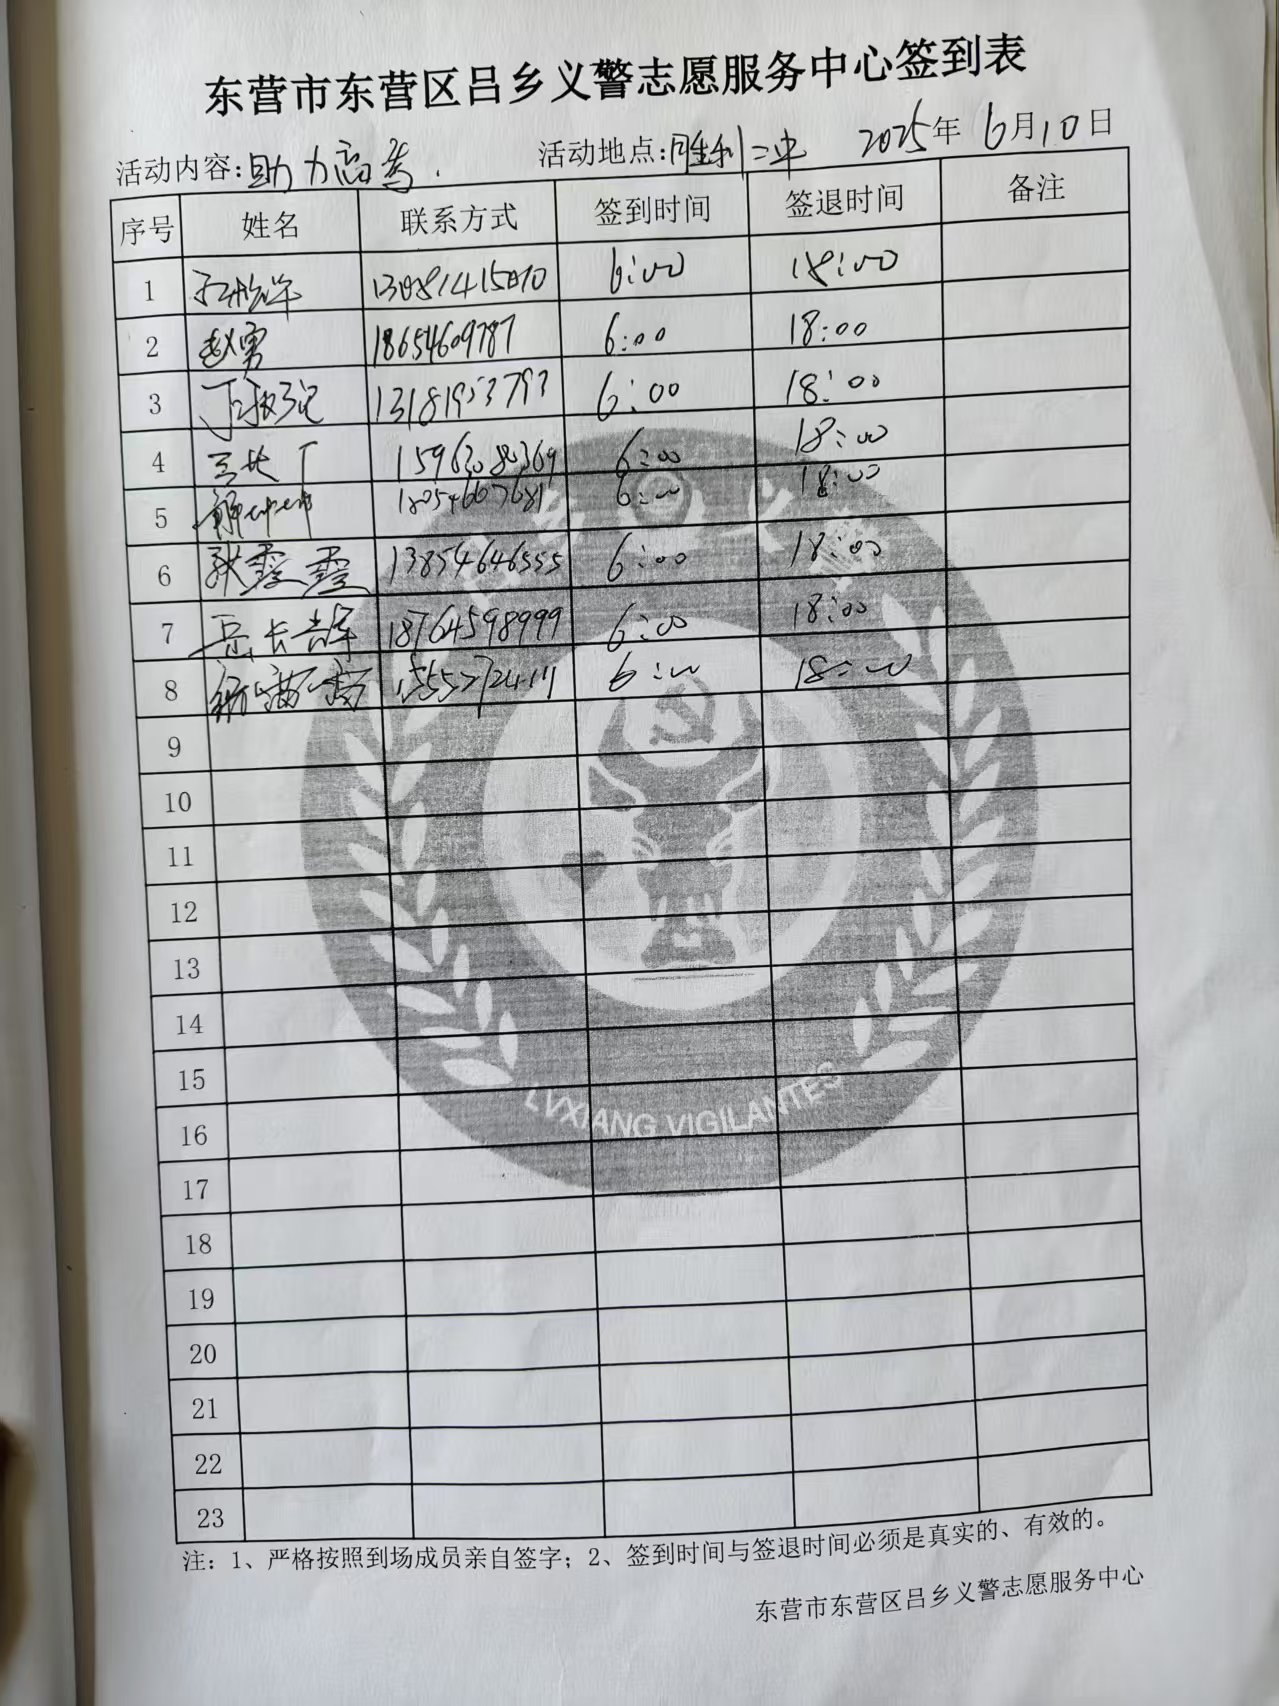 东营市东营区吕乡义警志愿服务中心签到表
活动内容:助力高考. 活动地点:胜利二中 2025年6月10日
序号 姓名 联系方式 签到时间 签退时间 备注
1 6:00 18:00
2 赵勇 18654609787 6:00 18:00
3 13181953793 6:00 18:00
4 15963080369 6:00 18:00
5 18054667681 6:00 18:00
6 张霞霞 13854646555 6:00 18:00
7 18764598999 6:00 18:00
8 6:00 18:00
9
10
11
12
13
14
15
16
17
18
19
20
21
22
23
LVXIANG VIGILANTES
注：1、严格按照到场成员亲自签字；2、签到时间与签退时间必须是真实的、有效的。
东营市东营区吕乡义警志愿服务中心